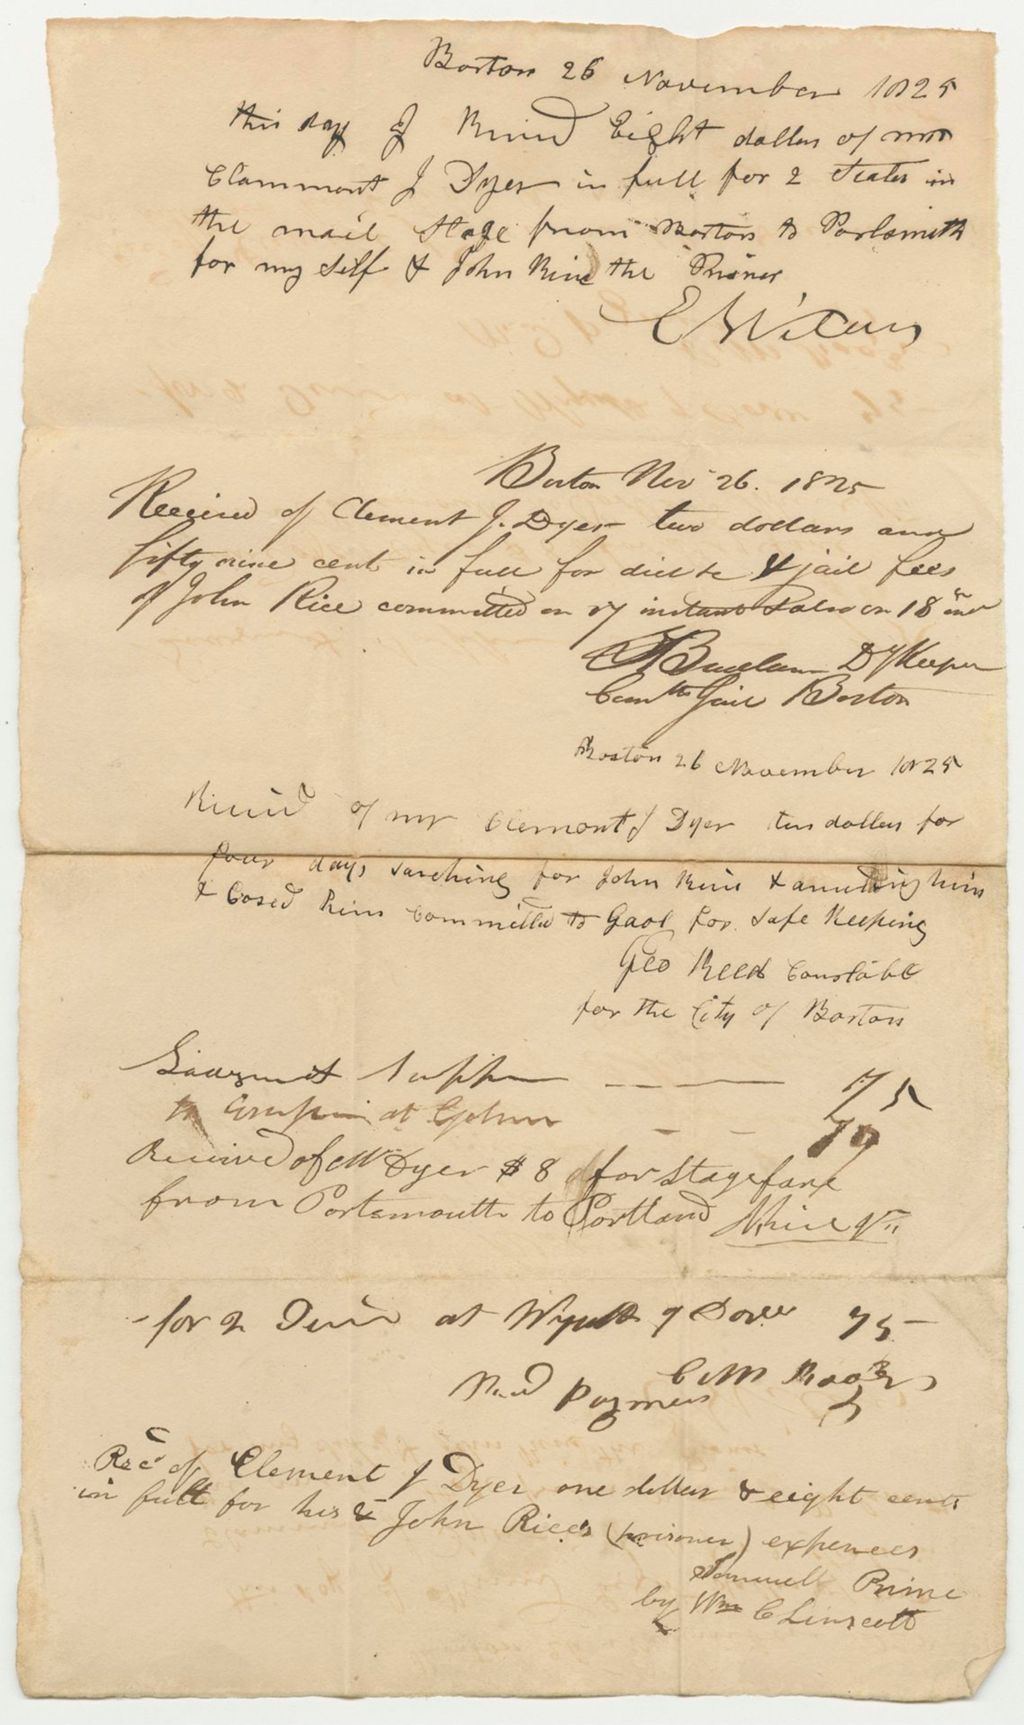 Boston 26 November 1825
this day J Receivd Eight dollers of mr
Clammont J Dyer in full for 2 Seates in
the mail Stage from Boston to Portsmith
for my Self & John Rice the Prisner
Boston Nov 26. 1825
Received of Clement J. Dyer two dollars and
fifty nine cents in full for diet &c & jail fees
of John Rice committed on 17 instant & also on 18 inst
Dy Keeper
Jail Boston
Boston 26 November 1825
Receivd of mr Clemont J Dyer ten dollers for
four days sarching for John Rice & him
& Cosed him Committed to Gaol for Safe Keeping
Geo Reed Constable
for the City of Boston
75
at
Received of Mr Dyer $8 for Stage fare
from Portsmouth to Portland
for 2 at of Dover 75
Recd Payment
Recd of Clement J Dyer one doller & eight cents
in full for his & John Rice's (prisoner) expences
Samuell Prime
by Wm C Linscott